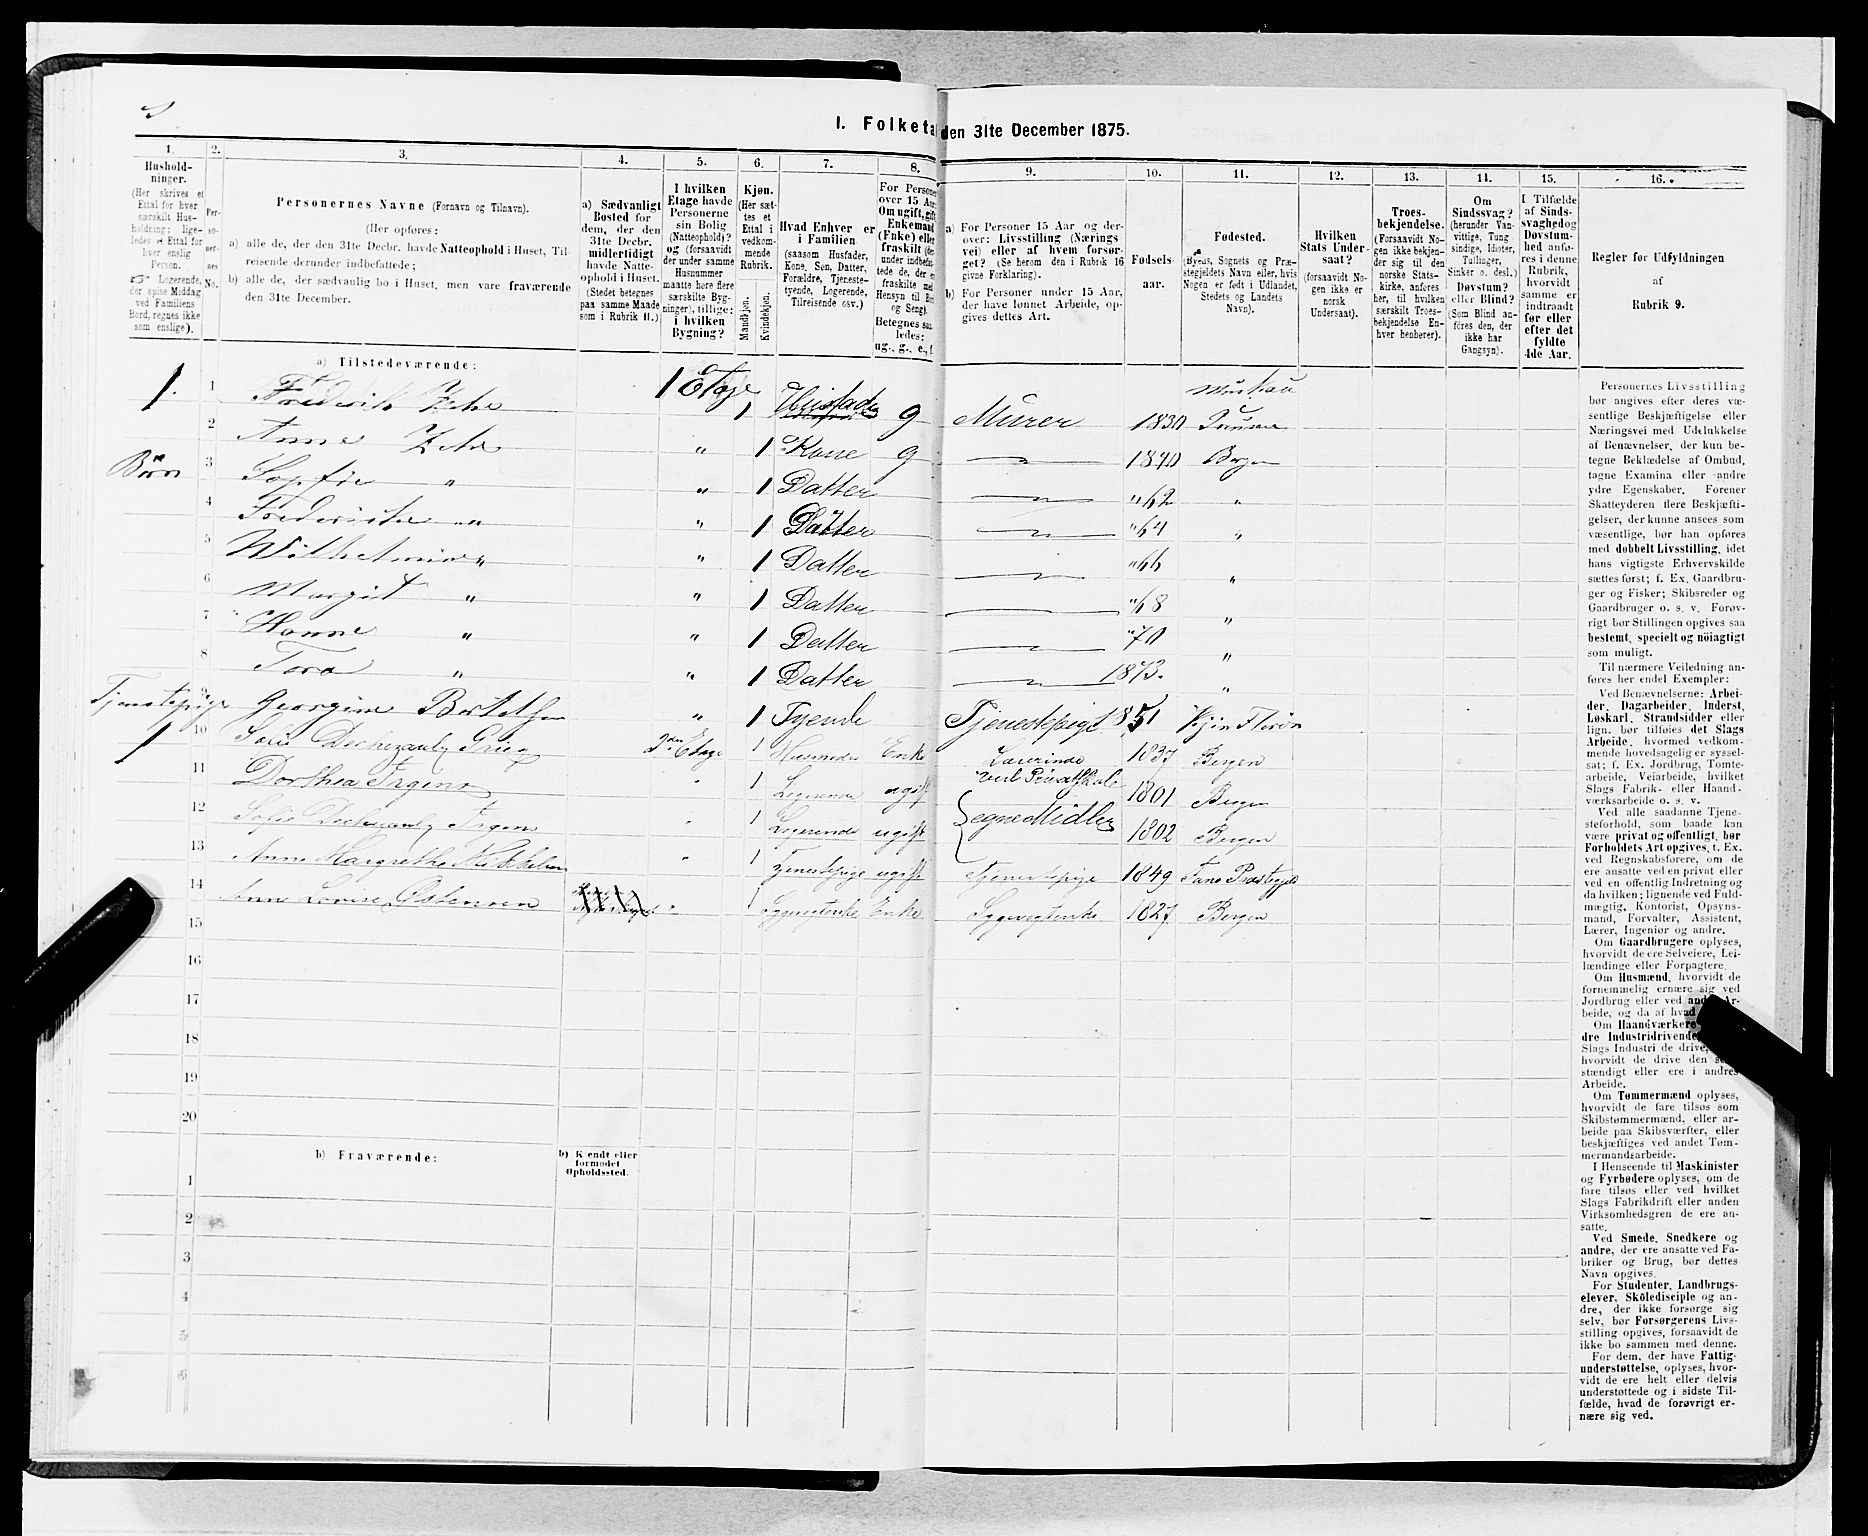 I. Folketa den 31te December 1875.
1. 2. 3. 4. 5. 6. 7. 8. 9. 10. 11. 12. 13. 14. 15. 16.
Hushold-
ninger.
(Her skrives et
Ettal for hver
særskilt Hus-
holdning; lige-
ledes et Ettal for
hver enslig
Person.
Logerende,
der spise Middag
ved Familiens
Bord, regnes ikke
som enslige).
Per-
so-
ner-
nes
No.
Personernes Navne (Fornavn og Tilnavn).
(Her opføres:
a) alle de, der den 31te Decbr. havde Natteophold i Huset, Til-
reisende derunder indbefattede;
b) alle de, der sædvanlig bo i Huset, men vare fraværende
den 31te December.
a) Sædvanligt
Bosted for
dem, der den
31te Decbr.
midlertidigt
havde Natte-
ophold i Huset.
(Stedet betegnes
paa samme Maade
som i Rubrik 11.)
I hvilken
Etage havde
Personerne
sin Bolig
(Natteophold)?
og (forsaavidt
der under samme
Husnummer
maatte høre flere
særskilte Byg-
ninger), tillige:
i hvilken
Bygning?
Kjøn.
(Her sæt-
tes et
Ettal i
vedkom-
mende
Rubrik.
Mandkjøn.
Kvindekjøn.
Hvad Enhver er
i Familien
(saasom Husfader,
Kone, Søn, Datter,
Forældre, Tjeneste-
tyende, Logerende,
Tilreisende osv.)
For Personer
over 15 Aar:
Om ugift, gift
Enkemand
(Enke) eller
fraskilt (der-
under indbefat-
tede de, der er
fraskilte med
Hensyn til Bord
og Seng).
Betegnes saa-
ledes:
ug., g., e., f.
a) For Personer 15 Aar og der-
over: Livsstilling (Nærings
vei) eller af hvem forsør-
get? (Se herom den i Rubrik 16
givne Forklaring).
b) For Personer under 15 Aar,
der have lønnet Arbeide, op-
gives dettes Art.
Fødsels-
aar.
Fødested.
(Byens, Sognets og Præ-
stegjeldets Navn eller, hvis
Nogen er født i Udlandet,
Stedets og Landets
Navn).
Hvilken
Stats Under-
saat?
(forsaavidt No-
gen ikke er
norsk
Undersaat).
Troes-
bekjendelse.
(Forsaavidt No-
gen ikke bekjen-
der sig til den
norske Stats-
kirke, anføres
her, til hvilken
særskilt Troes-
bekjendelse En-
hver henhører).
Om
Sindssvag?
(herunder Van-
vittige, Tung
sindige, Idioter,
Tullinger,
Sinker o. desl.)
Døvstum?
eller Blind?
(Som Blind an-
føres den, der
ikke har
Gangsyn).
I Tilfælde
af Sinds-
svaghed og
Døvstum-
hed anfø-
res i denne
Rubrik,
hvorvidt
samme er
indtraadt
før eller
efter det
fyldte
4de Aar.
Regler for Udfyldningen
af
Rubrik 9.
a) Tilstedeværende:
1. 1 Frederik Zehe 1 Etage 1 Husfader g Murer 1830 Muskau
2 Anne Zehe " 1 Kone g 1840 Bergen
Børn 3 Sopfie " " 1 Datter "62 "
4 Frederikke " " 1 Datter "64 "
5 Wilhelmine " " 1 Datter "66 "
6 Margit " " 1 Datter "68 "
7 Hanne " " 1 Datter "70 "
8 Tora " " 1 Datter 1873. "
Tjenstepige 9 Georgine Bertelsen " 1 Tyende Tjenestepige 1851 Kinn Florøn
1 10 Sofie Dechezaulx Grieg 2den Etage 1 Husmoder Enke Lærerinde 1837 Bergen
ved Privatskole
11 Dorthea Irgens " 1 Logerende ugift 1801 Bergen
egne Midler
12 Sofie Dechezaulx Irgens " 1 Logerende ugift 1802 Bergen
13 Anne Margrethe Mikkelsen " 1 Tjenestepige ugift Tjenestepige 1849 Fane Præstegjeld
14 Anne Lovise Østensen " 1 Sygevogterske Enke Sygevogterske 1827 Bergen
15
16
17
18
19
20
b) Fraværende:
b) Kjendt eller
formodet
Opholdssted.
1
2
3
4
5
6
Personernes Livsstilling
bør angives efter deres væ-
sentlige Beskjæftigelse eller
Næringsvei med Udelukkelse
af Benævnelser, der kun be-
tegne Beklædelse af Ombud,
tagne Examina eller andre
ydre Egenskaber. Forener
Skatteyderen flere Beskjæfti-
gelser, der kunne ansees som
væsentlige, bør han opføres
med dobbelt Livsstilling, idet
hans vigtigste Erhvervskilde
sættes først; f. Ex. Gaardbru-
ger og Fisker; Skibsreder og
Gaardbruger o. s. v. Forøv-
rigt bør Stillingen opgives saa
bestemt, specielt og nöiagtigt
som muligt.
Til nærmere Veiledning an-
føres her endel Exempler:
Ved Benævnelserne: Arbei-
der, Dagarbeider, Inderst,
Løskarl, Strandsidder eller
lign. bør tilføies det Slags
Arbeide, hvormed vedkom-
mende hovedsagelig er syssel-
sat; f. Ex. Jordbrug, Tomte-
arbeide, Veiarbeide, hvilket
Slags Fabrik- eller Haand-
værksarbeide o. s. v.
Ved alle saadanne Tjene-
steforhold, som baade kan
være privat og offentligt, bør
Forholdets Art opgives, t. Ex.
ved Regnskabsførere, om de
ere ansatte ved en privat eller
ved en offentlig Indretning og
da hvilken; lignende ved Fuld-
mægtig, Kontorist, Opsyns-
mand, Forvalter, Assistent,
Lærer, Ingeniør og andre.
Om Gaardbrugere oplyses,
hvorvidt de ere Selveiere, Lei-
lændinge eller Forpagtere.
Om Husmænd, hvorvidt de
fornemmelig ernære sig ved
Jordbrug eller ved andet Ar-
beide, og da af hvad
Om Haandværkere
dre Industridrivende
Slags Industri de drive,
hvorvidt de drive den
stændigt eller ere i andres
Arbeide.
Om Tømmermænd oplyses,
hvorvidt de fare tilsøs som
Skibstømmermænd, eller ar-
beide paa Skibsværfter, eller
beskjæftiges ved andet Tøm-
mermandsarbeide.
I Henseende til Maskinister
og Fyrbødere oplyses, om de
fare tilsøs eller ved hvilket
Slags Fabrikdrift eller anden
Virksomhedsgren de ere an-
satte.
Ved Smede, Snedkere og
andre, der ere ansatte ved Fa-
briker og Brug, bør dettes
Navn opgives.
For Studenter, Landbrugs-
elever, Skôledisciple og an-
dre, der ikke forsørge sig
selv, bør Forsørgerens Livs-
stilling opgives, forsaavidt de
ikke bo sammen med denne.
For dem, der have Fattig-
understøttelse, oplyses, hvor-
vidt de ere helt eller delvis
understøttede og i sidste Til-
fælde, hvad de forøvrigt er-
nære sig ved.